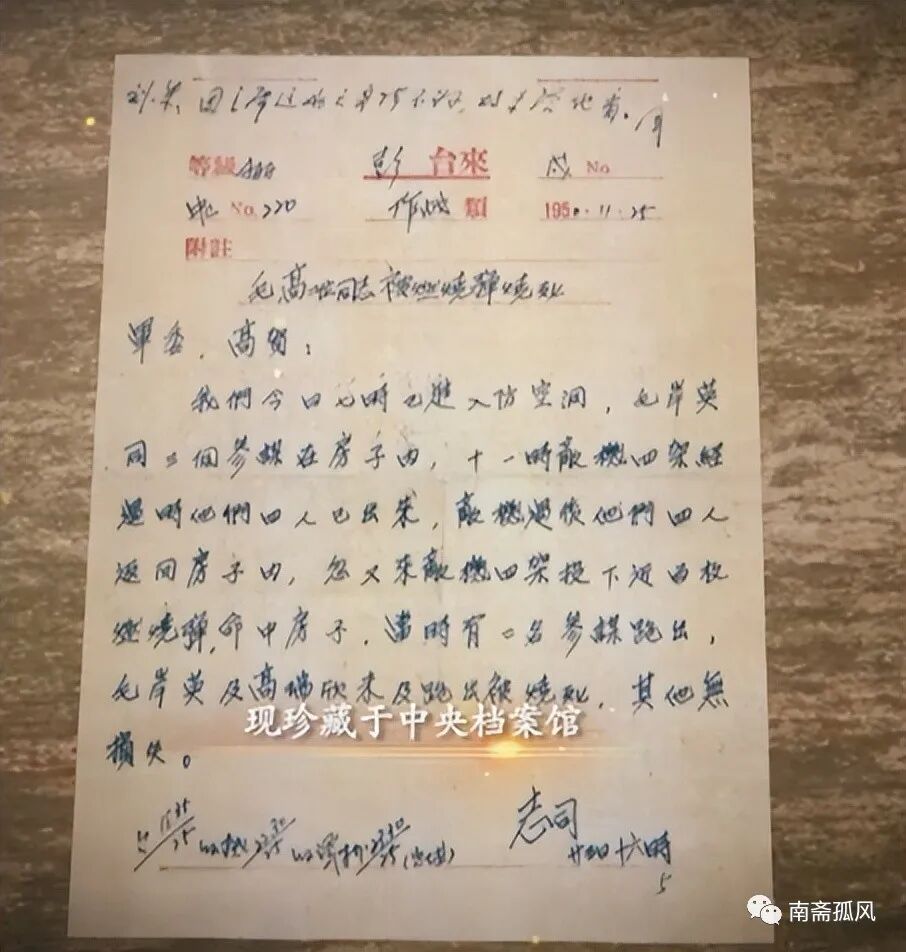 等級 彭 台來 No
No. 220 作战 類 1950.11.25
附註
毛高二同志被燃燒彈燒死
軍委，高賀：
我們今日七時已進入防空洞，毛岸英
同三個參謀在房子內，十一時敵機四架經
過時他們四人已出來，敵機過後他們四人
返回房子內，忽又來敵機四架投下近百枚
燃燒彈，命中房子，當時有二名參謀跑出，
毛岸英及高瑞欣未及跑出被燒死，其他無
損失。
现珍藏于中央档案馆
志司
十六時
南斋孤风